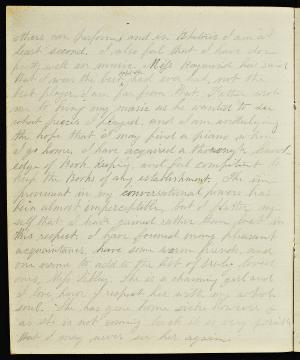 others can perform, and in Athletics I am at
least second. I also feel that I have done
pretty well in music. Miss Haywood has said
that I was the best she had ever had, not the
best player I am far from that. Father wrote
me to bring my music as he wanted to see
what pieces I played, and I am indulging
the hope that I may find a piano when
I go home, I have acquired a thorough knowl
edge of Book Keeping, and feel competent
keep the Books of any establishment. The im
provement in my conversational powers has
been almost imperceptible, but I flatter my
self that I have gained rather than lost in
this respect. I have formed many pleasant
acquaintances, have some warm friends, and
one name to add to the list of loved
ones, Miss Sibley. She is a charming girl and
I love, honor & respect her with my whole
soul. She has gone home sick however &
as she is not coming back it is very possible
that I may never see her again.